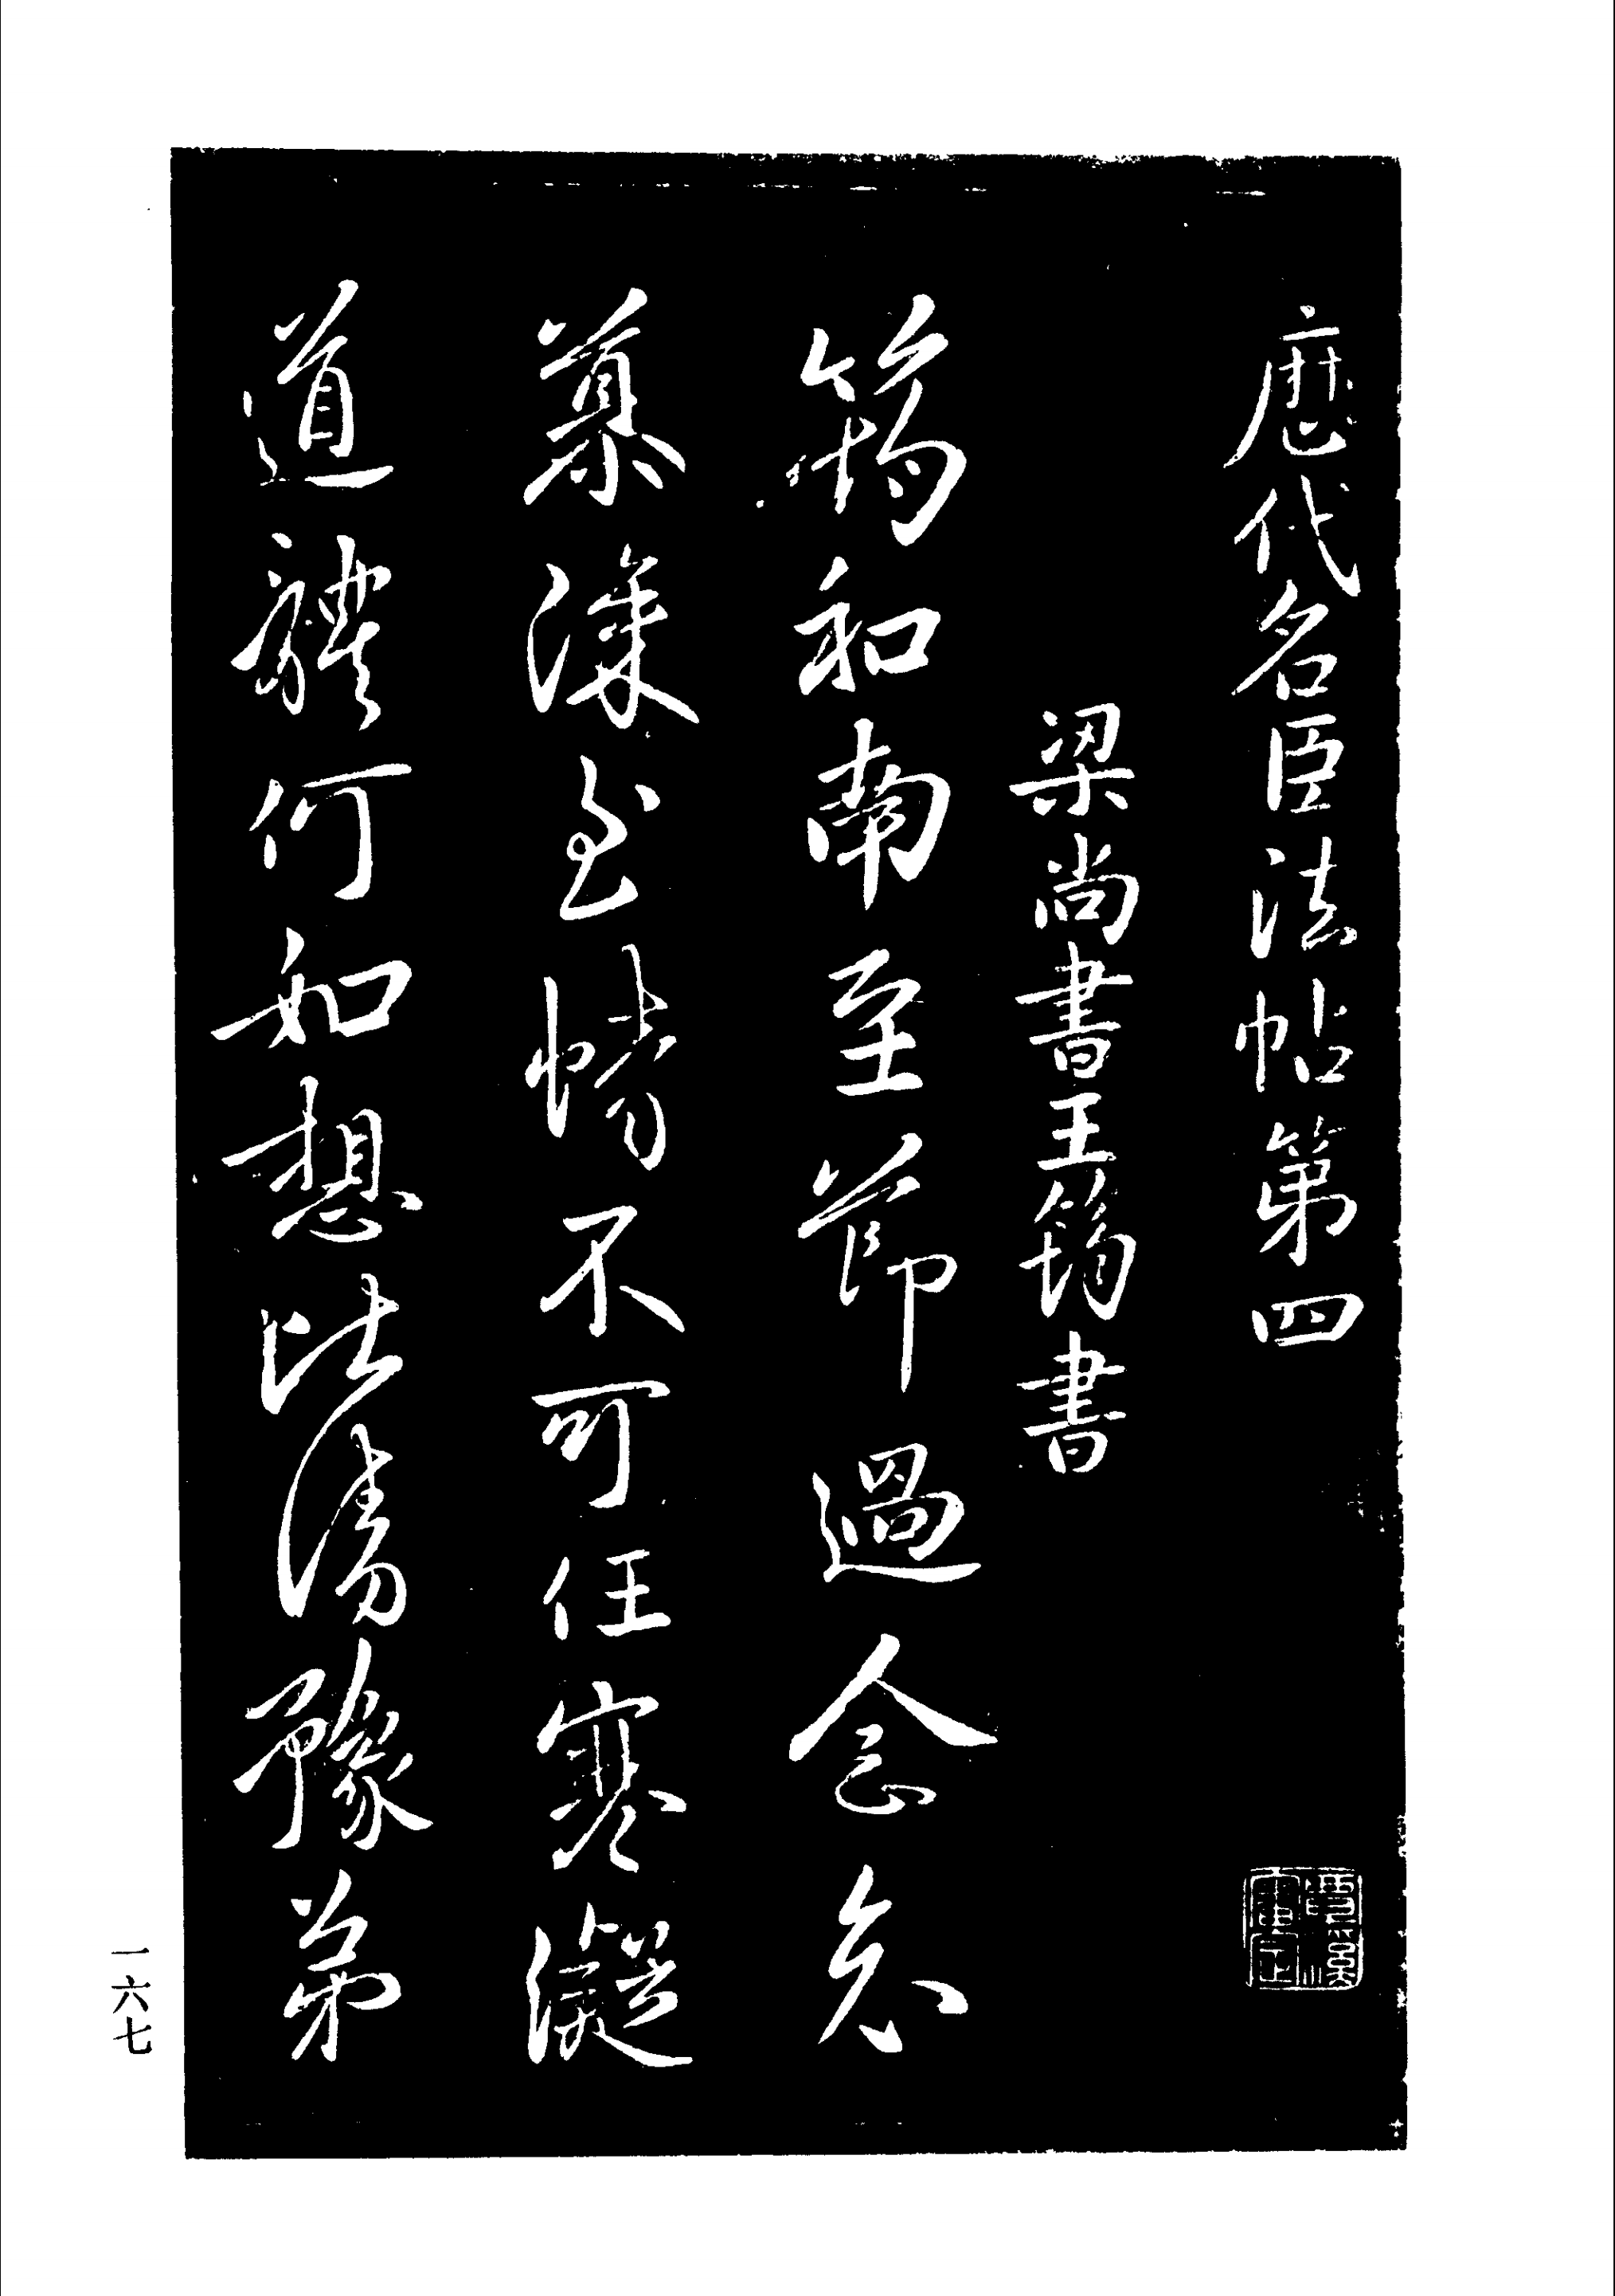 歷代名臣法帖第四
梁尚書王筠書
筠和南至節過念哀
慕深至情不可任寒凝
道體何如想比清豫弟
一六七